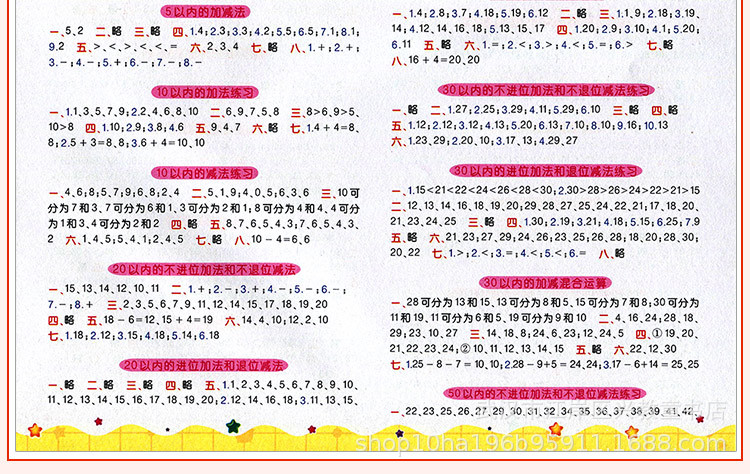 5以内的加减法
一、5、2 二、略 三、略 四、1.4;2.3;3.3;4.2;5.5;6.5;7.1;8.1;
9.2 五、>、<、>、<、<、= 六、2、3、4 七、略 八、1.+;2.+;
3.-;4.-;5.+;6.-;7.-;8.-
10以内的加法练习
一、1.1、3、5、7、9;2.2、4、6、8、10 二、6、9、7、5、8 三、8>6、9>5、
10>8 四、1.10;2.9;3.8;4.6 五、9、4、7 六、略 七、1.4+4=8、
8;2.5+3=8、8;3.6+4=10、10
10以内的减法练习
一、4、6;8;5、7;9;6、8;2、4 二、5、1、9;4、0、5;6、3、6 三、10可
分为7和3、7可分为6和1、3可分为2和1;8可分为4和4、4可分
为1和3、4可分为2和2 四、略 五、8、7、6、5、4、3;7、6、5、4、3、
2 六、1、4、5;5、4、1;2、4、5 七、略 八、10-4=6、6
20以内的不进位加法和不退位减法
一、15、13、14、12、10、11 二、1.+;2.-;3.+;4.-;5.-;6.-;
7.-;8.+ 三、2、3、5、6、7、9、11、12、14、15、17、18、19、20
四、略 五、18-6=12、15+4=19 六、14、4、10;12、2、10
七、1.18;2.12;3.15;4.18;5.14;6.18
20以内的进位加法和退位减法
一、略 二、略 三、略 四、略 五、1.1、2、3、4、5、6、7、8、9、10、
11、12、13、14、15、16、17、18、19、20;2.12、14、16、18;3.11、13、15、
一、1.4;2.8;3.7;4.18;5.19;6.12 二、略 三、1.1、9;2.18;3.19、
14;4.12、14、16、18;5.13、15、17 四、1.20;2.9;3.10;4.1;5.20;
6.11 五、略 六、1.=;2.<;3.>;4.<;5.=;6.> 七、略
八、16+4=20、20
30以内的不进位加法和不退位减法练习
一、略 二、1.27;2.25;3.29;4.11;5.29;6.10 三、略 四、略
五、1.12;2.12;3.12;4.13;5.20;6.13;7.10;8.10;9.16;10.13
六、1.23、29;2.20、10;3.17、13;4.29、27
30以内的进位加法和退位减法练习
一、1.15<21<22<24<26<28<30;2.30>28>26>24>22>21>15
二、12、13、14、16、18、19、20、29;29、28、27、25、24、22、21、17、18、20、
21、23、24、25 三、略 四、1.30;2.19;3.21;4.18;5.15;6.25;7.9
五、略 六、21、23;27、29;24、26;23、25;26、28;18、20;28、30;
20、22 七、1.>;2.<;3.=;4.<;5.<;6.= 八、略
30以内的加减混合运算
一、28可分为13和15、13可分为8和5、15可分为7和8;30可分为
11和19、11可分为6和5、19可分为9和10 二、4、16、24;28、18、
29;23、10、27 三、14、18、8;24、6、23;12、24、5 四、①19、20、
21、22、23、24;②10、11、12、13、14、15 五、略 六、22、12、30
七、1.25-8-7=10、10;2.28-9+5=24、24;3.17-6+14=25、25
50以内的不进位加法和不退位减法练习
一、22、23、25、26、27、29、30、31、32、34、35、36、37、38、39、41、42、
shop10ha196b95911.1688.com